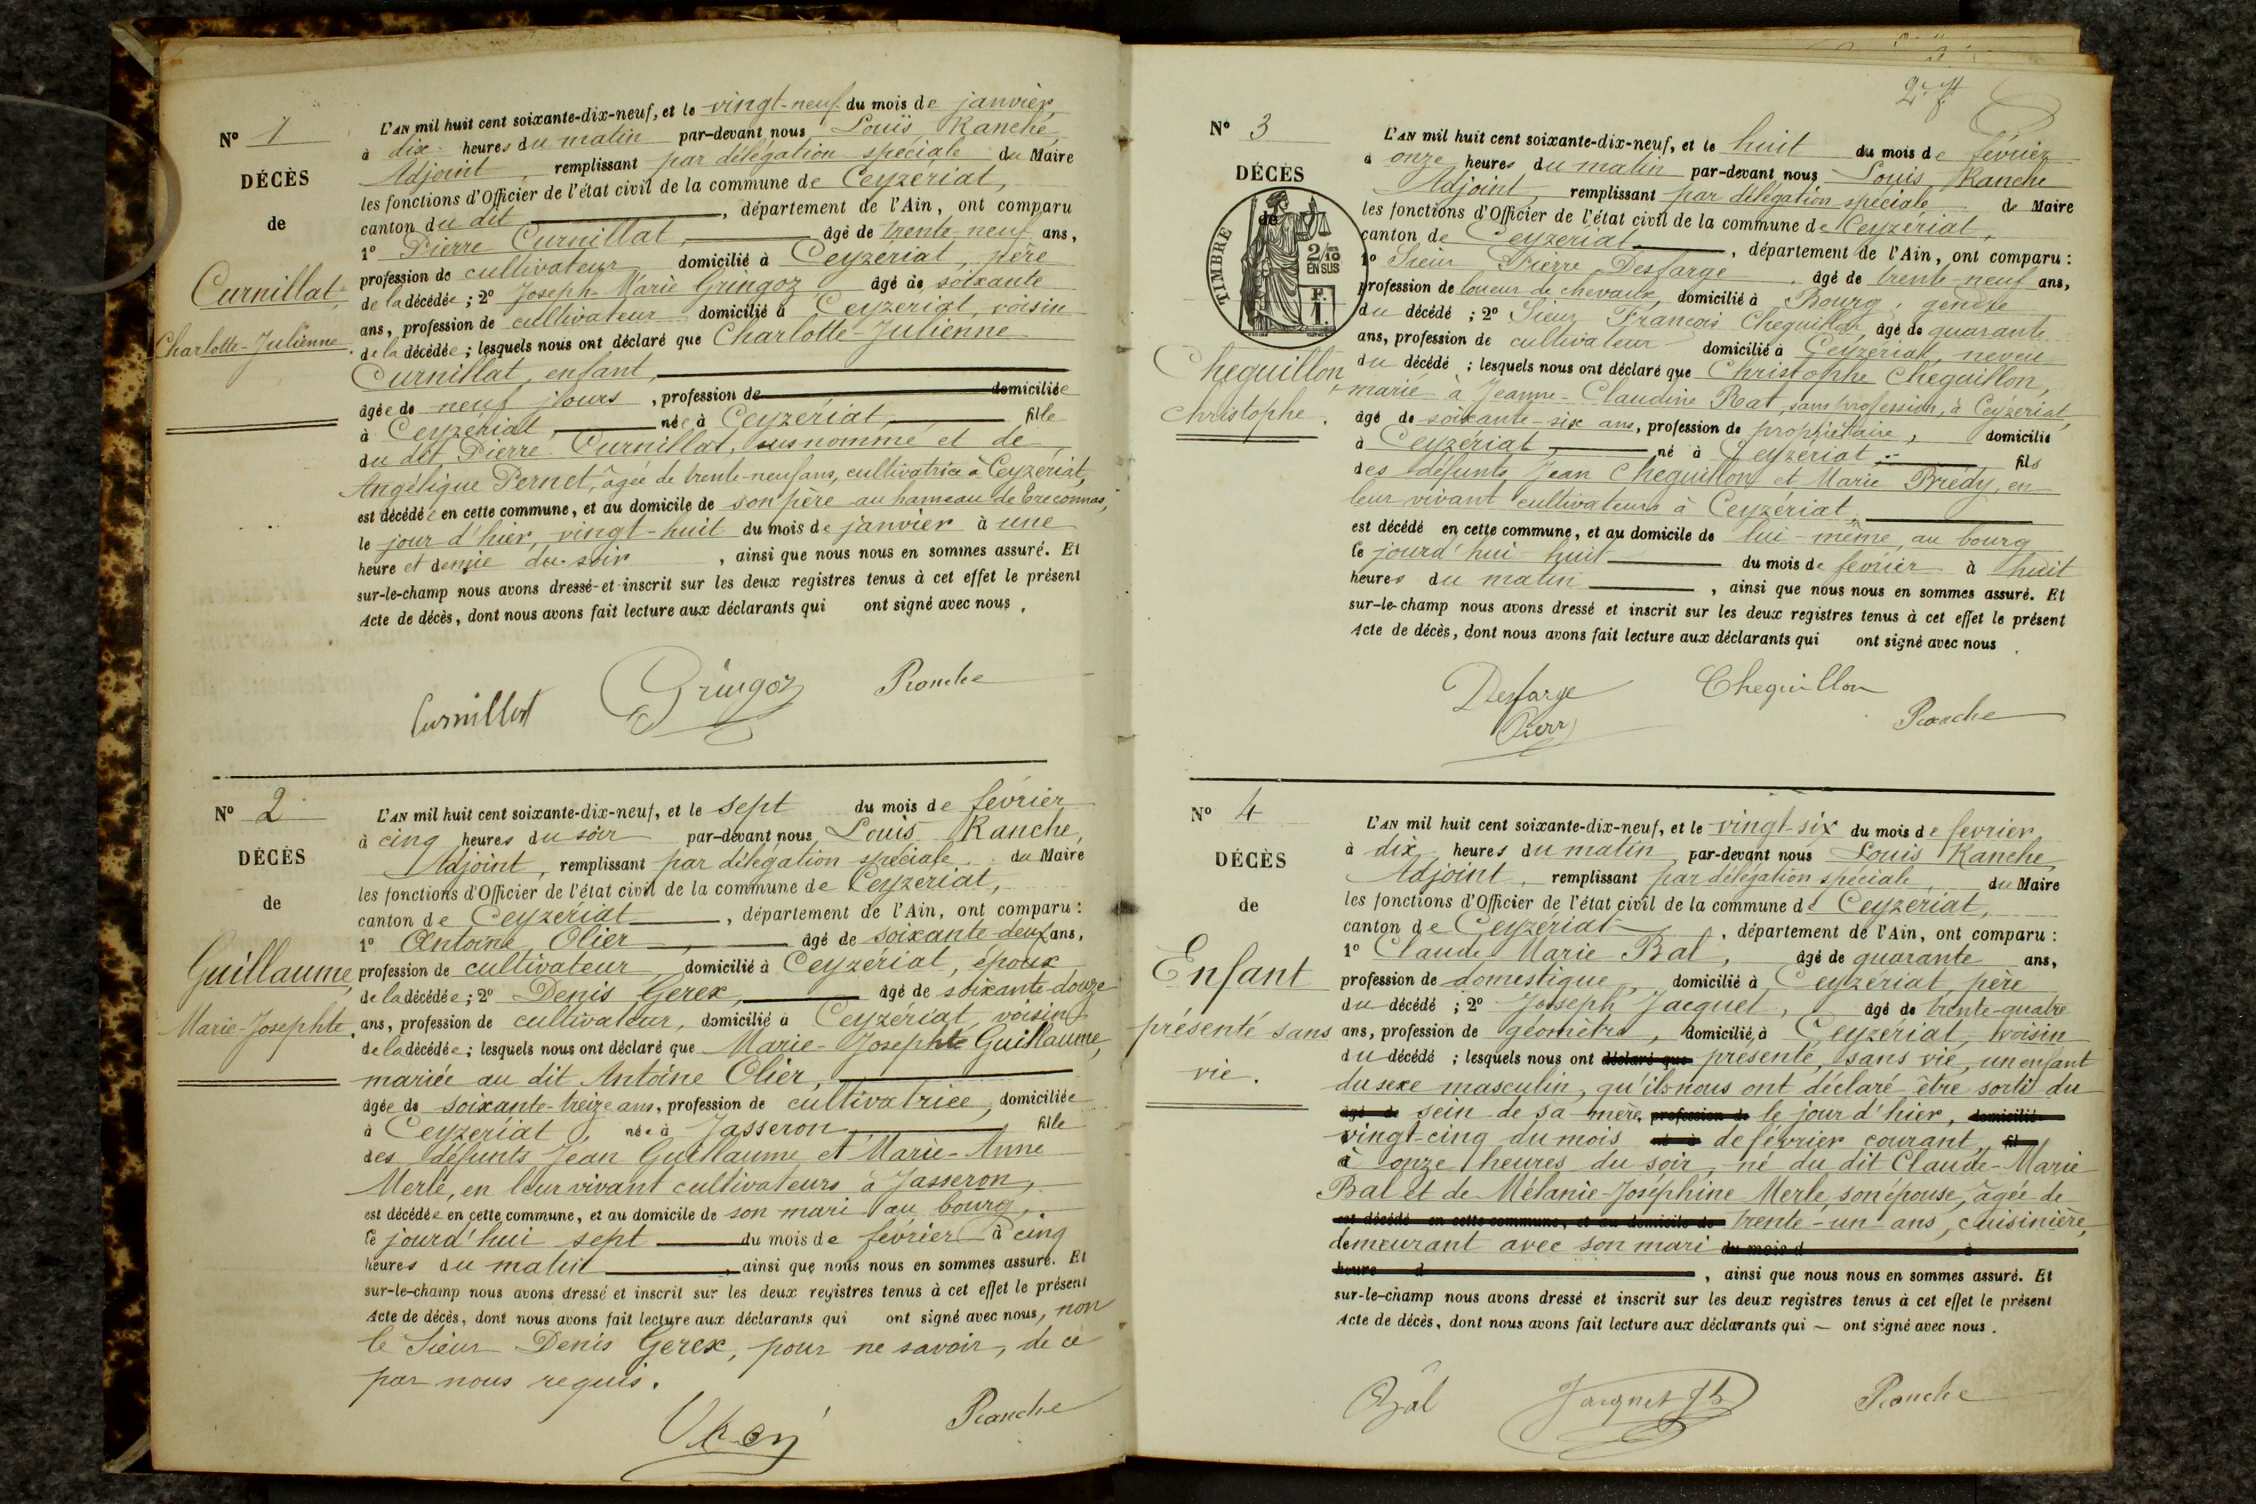 N° 1
DÉCÈS
de
Curnillat
Charlotte-Julienne.
L'AN mil huit cent soixante-dix-neuf, et le vingt-neuf du mois de janvier
à dix heures du matin par-devant nous Louis Ranche
Adjoint, remplissant par délégation spéciale du Maire
les fonctions d'Officier de l'état civil de la commune de Ceyzeriat,
canton du dit, département de l'Ain, ont comparu
1° Pierre Curnillat, âgé de trente-neuf ans,
profession de cultivateur domicilié à Ceyzériat, père
de la décédée; 2° Joseph-Marie Gringoz âgé de soixante
ans, profession de cultivateur domicilié à Ceyzeriat, voisin
de la décédée; lesquels nous ont déclaré que Charlotte-Julienne
Curnillat, enfant,
âgée de neuf jours, profession de domiciliée
à Ceyzériat, née à Ceyzériat, fille
du dit Pierre Curnillat, susnommé et de
Angélique Pernet, âgée de trente-neuf ans, cultivatrice à Ceyzériat,
est décédée en cette commune, et au domicile de son père au hameau de
le jour d'hier, vingt-huit du mois de janvier à une
heure et demie du soir, ainsi que nous nous en sommes assuré. Et
sur-le-champ nous avons dressé et inscrit sur les deux registres tenus à cet effet le présent
Acte de décès, dont nous avons fait lecture aux déclarants qui ont signé avec nous.
Curnillat Gringoz Ranche
N° 2
DÉCÈS
de
Guillaume,
Marie-Josephte.
L'AN mil huit cent soixante-dix-neuf, et le sept du mois de février
à cinq heures du soir par-devant nous Louis Ranche,
Adjoint, remplissant par délégation spéciale du Maire
les fonctions d'Officier de l'état civil de la commune de Ceyzeriat,
canton de Ceyzériat, département de l'Ain, ont comparu:
1° Antoine Olier, âgé de soixante-deux ans,
profession de cultivateur, domicilié à Ceyzériat, époux
de la décédée; 2° Denis Gerex, âgé de soixante-douze
ans, profession de cultivateur, domicilié à Ceyzeriat, voisin
de la décédée; lesquels nous ont déclaré que Marie-Josephte Guillaume,
mariée au dit Antoine Olier,
âgée de soixante-treize ans, profession de cultivatrice, domiciliée
à Ceyzériat, née à Jasseron, fille
des défunts Jean Guillaume et Marie-Anne
Merle, en leur vivant cultivateurs à Jasseron,
est décédée en cette commune, et au domicile de son mari au bourg,
le jourd'hui sept du mois de février à cinq
heures du matin, ainsi que nous nous en sommes assuré. Et
sur-le-champ nous avons dressé et inscrit sur les deux registres tenus à cet effet le présent
Acte de décès, dont nous avons fait lecture aux déclarants qui ont signé avec nous, non
le Sieur Denis Gerex, pour ne savoir, de ce
par nous requis.
Ranche
N° 3
DÉCÈS
de
TIMBRE
2/10
EN SUS
F.
1.
Chequillon
Christophe.
L'AN mil huit cent soixante-dix-neuf, et le huit du mois de février
à onze heures du matin par-devant nous Louis Ranche
Adjoint, remplissant par délégation spéciale du Maire
les fonctions d'Officier de l'état civil de la commune de Ceyzériat,
canton de Ceyzériat, département de l'Ain, ont comparu:
1° Sieur Pierre Desfarge, âgé de trente-neuf ans,
profession de loueur de chevaux, domicilié à Bourg, gendre
du décédé; 2° Sieur François Chequillon, âgé de quarante
ans, profession de cultivateur domicilié à Ceyzériat, neveu
du décédé; lesquels nous ont déclaré que Christophe Chequillon,
marié à Jeanne-Claudine Rat, sans profession, à Ceyzériat,
âgé de soixante-six ans, profession de propriétaire, domicilié
à Ceyzériat, né à Ceyzériat, fils
des défunts Jean Chequillon et Marie Brédy, en
leur vivant cultivateurs à Ceyzériat,
est décédé en cette commune, et au domicile de lui-même, au bourg
le jourd'hui huit du mois de février à huit
heures du matin, ainsi que nous nous en sommes assuré. Et
sur-le-champ nous avons dressé et inscrit sur les deux registres tenus à cet effet le présent
Acte de décès, dont nous avons fait lecture aux déclarants qui ont signé avec nous.
Desfarge Chequillon
Pierr Ranche
N° 4
DÉCÈS
de
Enfant
présenté sans
vie.
L'AN mil huit cent soixante-dix-neuf, et le vingt-six du mois de février
à dix heures du matin par-devant nous Louis Ranche,
Adjoint, remplissant par délégation spéciale, du Maire
les fonctions d'Officier de l'état civil de la commune de Ceyzériat,
canton de Ceyzériat, département de l'Ain, ont comparu:
1° Claude Marie Bal, âgé de quarante ans,
profession de domestique, domicilié à Ceyzériat, père
du décédé; 2° Joseph Jacquet, âgé de trente-quatre
ans, profession de géomètre, domicilié à Ceyzériat, voisin
du décédé; lesquels nous ont déclaré que présenté, sans vie, un enfant
du sexe masculin, qu'ils nous ont déclaré être sorti du
âgé de sein de sa mère, profession de le jour d'hier, domicilié
vingt-cinq du mois né à de février courant, fil
à onze heures du soir, né du dit Claude-Marie
Bal et de Mélanie-Joséphine Merle, son épouse, âgée de
est décédé en cette commune, et au domicile de trente-un ans, cuisinière,
demeurant avec son mari du mois d à
heure d, ainsi que nous nous en sommes assuré. Et
sur-le-champ nous avons dressé et inscrit sur les deux registres tenus à cet effet le présent
Acte de décès, dont nous avons fait lecture aux déclarants qui ont signé avec nous.
Bal Jacquet Jh Ranche